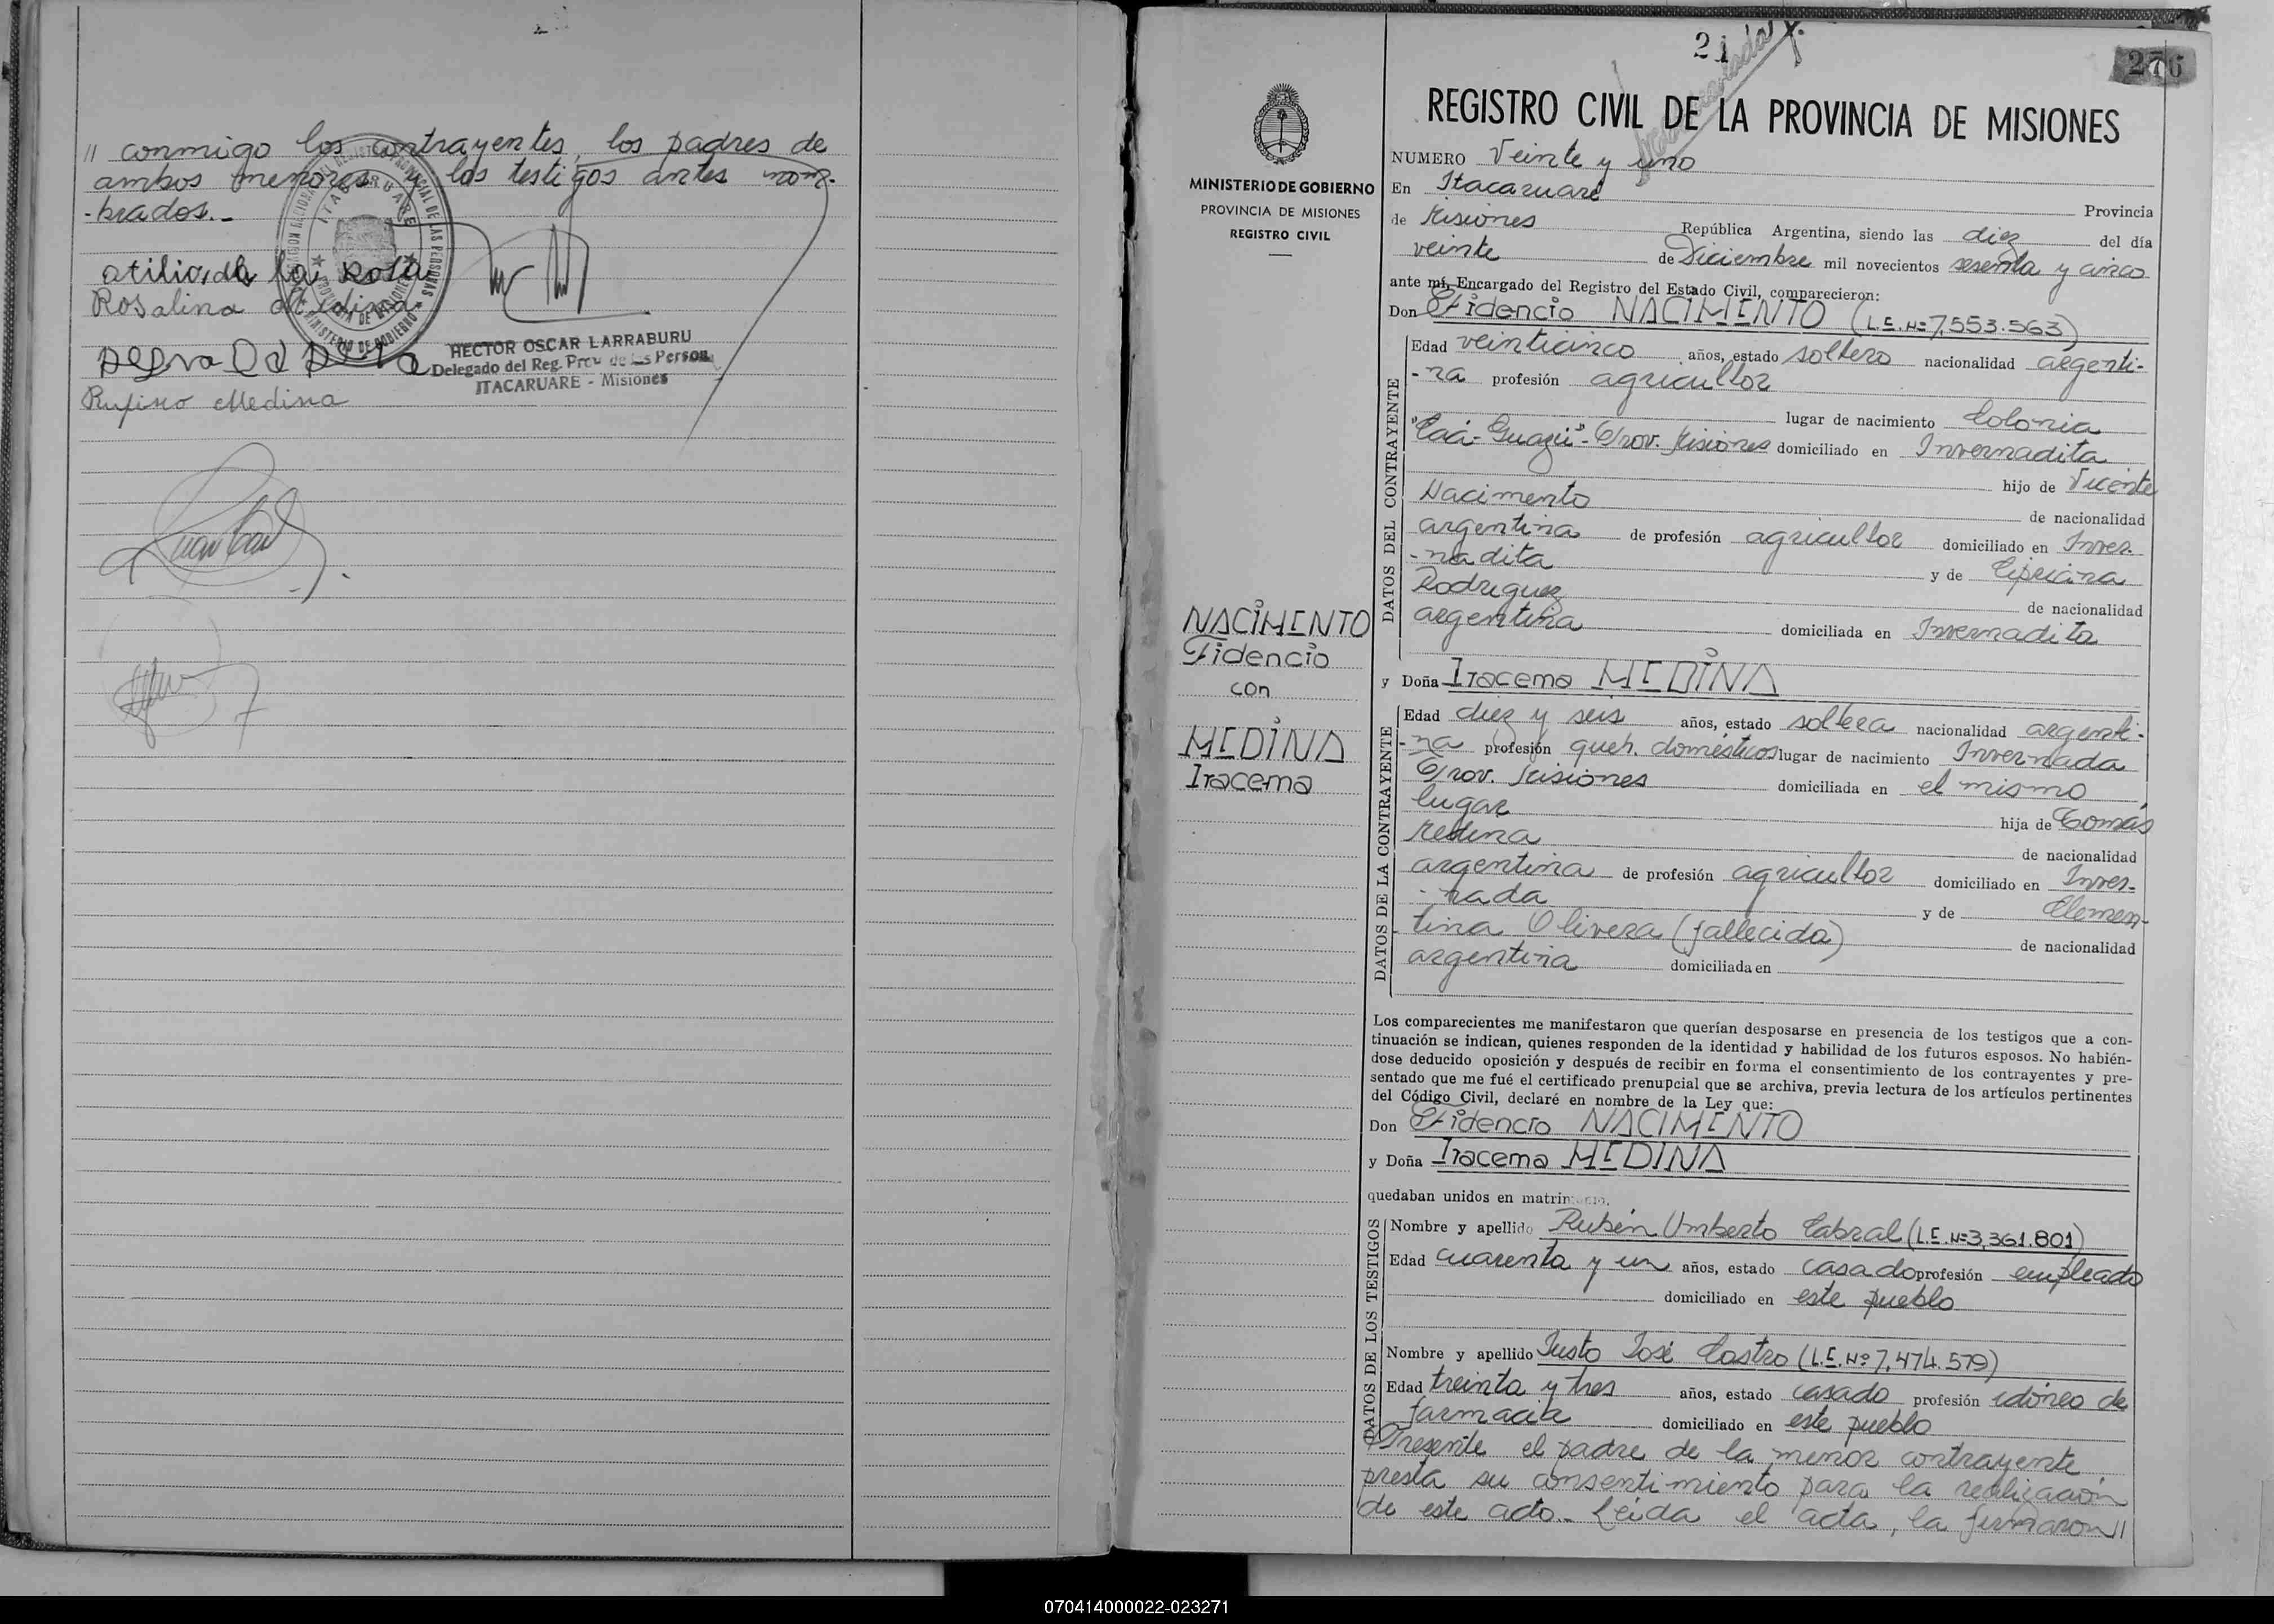 // conmigo los contrayentes, los padres de
ambos menores y los testigos antes nom-
-brados.-
atilio, da la Rosa
Rosalina Medina
Rufino Medina
HECTOR OSCAR LARRABURU
Delegado del Reg. Prov. de las Person.
ITACARUARE - Misiones
21
276
REGISTRO CIVIL DE LA PROVINCIA DE MISIONES
MINISTERIO DE GOBIERNO
PROVINCIA DE MISIONES
REGISTRO CIVIL
NACIMENTO
Fidencio
con
MEDINA
Iracema
NUMERO Veinte y uno
En Itacaruaré Provincia
de Misiones República Argentina, siendo las diez del día
veinte de Diciembre mil novecientos sesenta y cinco
ante mí, Encargado del Registro del Estado Civil, comparecieron:
Don Fidencio NACIMENTO (L.E. Nº 7,553.563)
DATOS DEL CONTRAYENTE
Edad veinticinco años, estado soltero nacionalidad argenti-
-na profesión agricultor
lugar de nacimiento Colonia
"Caá-Guazú"- Prov. Misiones domiciliado en Invernadita
hijo de Vicente
Nacimento de nacionalidad
argentina de profesión agricultor domiciliado en Inver-
-nadita y de Cipriana
Rodriguez de nacionalidad
argentina domiciliada en Invernadita
y Doña Iracema MEDINA
DATOS DE LA CONTRAYENTE
Edad diez y seis años, estado soltera nacionalidad argenti-
-na profesión queh. domésticos lugar de nacimiento Invernada
Prov. Misiones domiciliada en el mismo
lugar hija de Tomás
Medina de nacionalidad
argentina de profesión agricultor domiciliado en Inver-
-nada y de Clemen-
-tina Olivera (fallecida) de nacionalidad
argentina domiciliada en
Los comparecientes me manifestaron que querían desposarse en presencia de los testigos que a con-
tinuación se indican, quienes responden de la identidad y habilidad de los futuros esposos. No habién-
dose deducido oposición y después de recibir en forma el consentimiento de los contrayentes y pre-
sentado que me fué el certificado prenupcial que se archiva, previa lectura de los artículos pertinentes
del Código Civil, declaré en nombre de la Ley que:
Don Fidencio NACIMENTO
y Doña Iracema MEDINA
quedaban unidos en matrimonio.
DATOS DE LOS TESTIGOS
Nombre y apellido Rubén Umberto Cabral (L.E. Nº 3,361.801)
Edad cuarenta y un años, estado casado profesión empleado
domiciliado en este pueblo
Nombre y apellido Justo José Castro (L.E. Nº 7,474.579)
Edad treinta y tres años, estado casado profesión idóneo de
farmacia domiciliado en este pueblo
Presente el padre de la menor contrayente,
presta su consentimiento para la realización
de este acto.- Leída el acta, la firmaron //
070414000022-023271